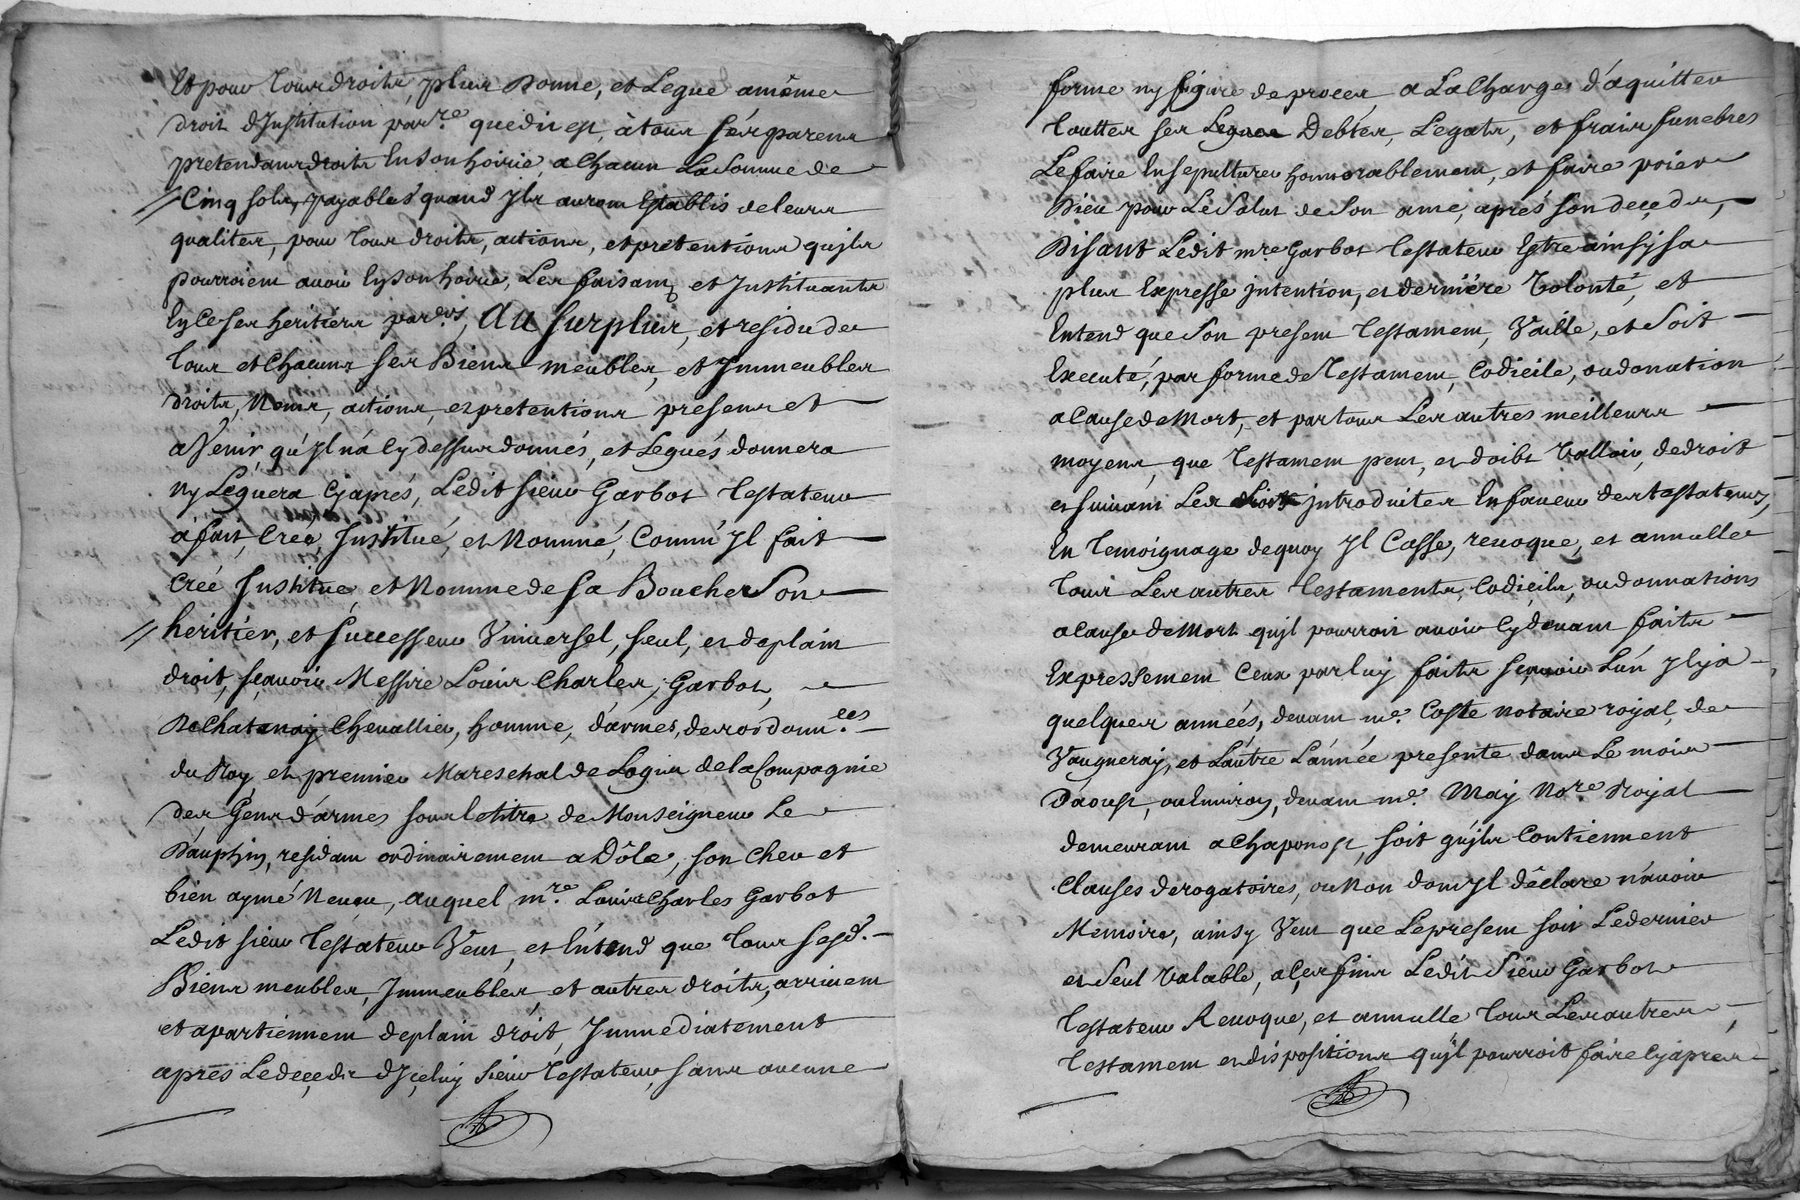 Et pour tous droits, plus Donne, et Legue a même
droit d'Institution par.re que dit est, à tous sés parens
pretendans droits En son hoirie, a chacun La Somme de
// Cinq sols, payables quand Ils auront Establis de leurs
qualites, pour tous droits, actions, et pretentions qu'jls
pourroient avoir En son hoirie, Les faisant et Instituants
En Ce ses heritiers par.eis, Au surplus, et residu de
tous et Chacuns ses Biens meubles, et Immeubles
droits, Noms, actions, et pretentions presens et
a Venir, qu'jl n'a Cy dessus donnés, et Legués donnera
ny Leguera Cyaprés, Ledit sieur Garbot Testateur
à fait, Créé, Institué, et Nommé, Comm'Jl fait
Creé Institue, et Nomme de sa Bouche Son
// heritier, et successeur Vniversel, seul, et de plain
droit, sçavoir Messire Louis Charles, Garbot,
De Chatenay Chevallier, homme, d'armes, des ordonn.ces
du Roy, et premier Mareschal de Logis de la Compagnie
des Gens d'armes sous le titre de Monseigneur Le
Dauphin, residant ordinairement a Dôle, son Cher et
bien aymé Neveu, auquel m.re Louis Charles Garbot
Ledit sieur Testateur Veut, et Entend que tous sesd.
Biens meubles, Immeubles, et autres droits, arrivent
et apartiennent de plain droit, Immediatement
aprés Le deçeds d'Içeluy sieur Testateur, sans aucune
forme ny figure de procés, a La Charge d'aquitter
touttes ses Debtes, Legats, et frais funebres
Le faire Ensepulturer honnorablement, et faire prier
Dieu pour Le Salut de Son ame, aprés son deçeds,
Disant Ledit m.re Garbot Testateur Estre ainsy sa
plus Expresse jntention, et derniére Volonté, et
Entend que Son present Testament, Vaille, et Soit
Executé, par forme de Testament, Codicile, ou donation
a Cause de Mort, et par tous Les autres meilleurs
moyens que Testament peut, et doibt Valloir, de droit
et suivant Les droits jntroduites En faveur des testateurs,
En temoignage de quoy Jl Casse, revoque, et annulle
tous Les autres Testaments, Codicils, ou donnations
a Cause de Mort qu'jl pourroit avoir Cy devant faits
Expressement Ceux par luy faits sçavoir L'un Jl y a
quelques années, devant m.e Coste notaire royal, de
Vaugneray, et L'autre L'année presente dans Le mois
D'aoust, ou Environ, devant m.e May No.re Royal
demeurant a Chaponost, soit qu'jls Contiennent
Clauses derogatoires, ou Non dont Jl déclare n'avoir
Memoire, ainsy Veut que Le present soit Le dernier
et Seul Valable, a çes fins Ledit Sieur Garbot
Testateur Revoque, et annulle tous Les autres
Testament et dispositions qu'jl pourroit faire Cyaprés